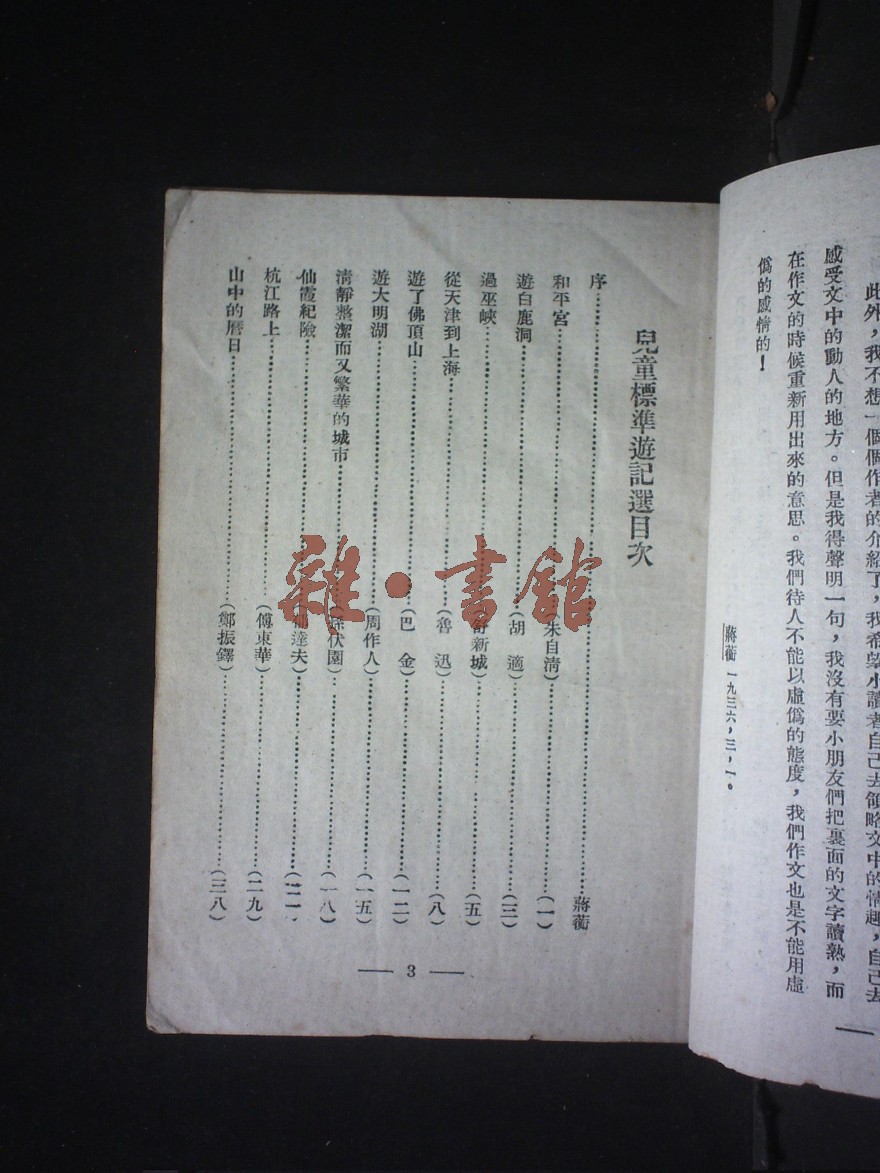 此外，我不想一個個作者的介紹了，我希望小讀者自己去領略文中的情趣，自己去
感受文中的動人的地方。但是我得聲明一句，我沒有要小朋友們把裏面的文字讀熟，而
在作文的時候重新用出來的意思。我們待人不能以虛僞的態度，我們作文也是不能用虛
僞的感情的！
蔣蘅 一九三六，三，一。
兒童標準遊記選目次
序……蔣蘅
和平宮……朱自清）……（一）
遊白鹿洞……（胡 適）……（三）
過巫峽……舒新城）……（五）
從天津到上海……（魯 迅）……（八）
遊了佛頂山……（巴 金）……（一二）
遊大明湖……（周作人）……（一五）
清靜整潔而又繁華的城市……（孫伏園）……（一八）
仙霞紀險……（郁達夫）……（二一
杭江路上……（傅東華）……（二九）
山中的曆日……（鄭振鐸）……（三八）
— 3 —
雜·書館